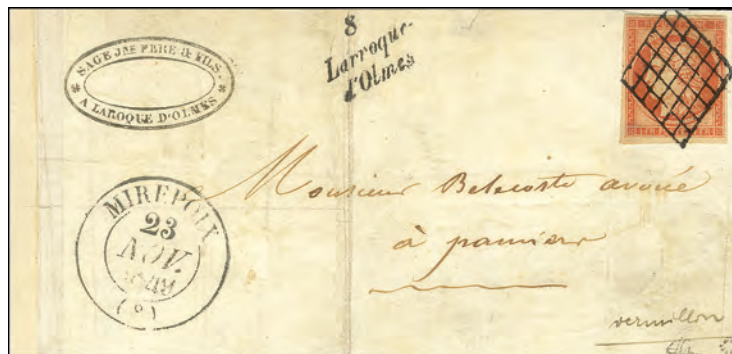 SAGE Jne PERE & FILS
A LAROQUE D'OLMES
8
Larroque-
d'Olmes
MIREPOIX
23
NOV.
1849
(8)
Monsieur Belecoste avoué
à pamiers
vermillon